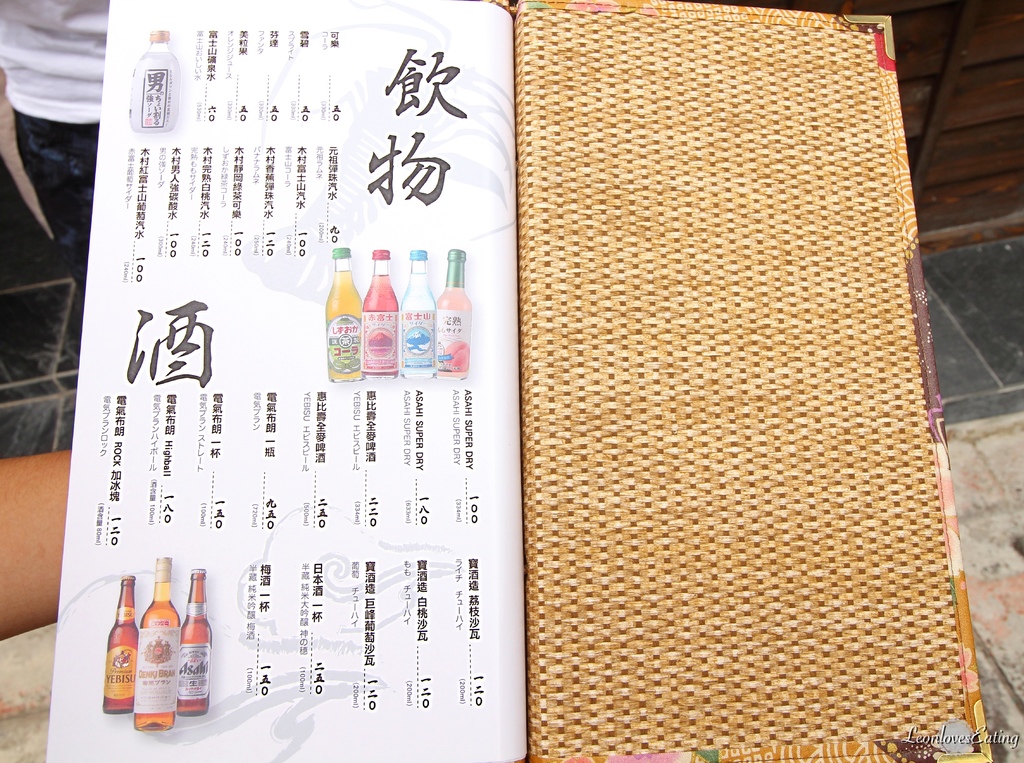 飲物
可樂 五〇
コーラ
雪碧 五〇
スプライト
芬達 五〇
ファンタ
美粒果 五〇
オレンジジュース
富士山礦泉水 六〇
富士山おいしい水
元祖彈珠汽水 九〇
元祖ラムネ (200ml)
木村富士山汽水 一〇〇
富士山コーラ (240ml)
木村香蕉彈珠汽水 一二〇
バナナラムネ
木村靜岡綠茶可樂 一〇〇
しずおか緑茶コーラ (240ml)
木村完熟白桃汽水 一二〇
完熟ももサイダー (240ml)
木村男人強碳酸水 一〇〇
男の強ソーダ
木村紅富士山葡萄汽水 一〇〇
赤富士葡萄サイダー (240ml)
男の
ちょい割る
強ソーダ
しずおか
茶
コーラ
赤富士
富士山
サイダー
完熟
ももサイダー
酒
ASAHI SUPER DRY 一〇〇
ASAHI SUPER DRY (334ml)
ASAHI SUPER DRY 一八〇
ASAHI SUPER DRY (633ml)
惠比壽全麥啤酒 二二〇
YEBISU ヱビスビール (334ml)
惠比壽全麥啤酒 二五〇
YEBISU ヱビスビール (500ml)
電氣布朗 一瓶 九五〇
電気ブラン (720ml)
電氣布朗 一杯 一五〇
電気ブラン ストレート (100ml)
電氣布朗 Highball 一八〇
電気ブランハイボール (酒含量 100ml)
電氣布朗 ROCK 加冰塊 一二〇
電気ブランロック (酒含量 80ml)
寶酒造 荔枝沙瓦 一二〇
ライチ チューハイ (200ml)
寶酒造 白桃沙瓦 一二〇
もも チューハイ (200ml)
寶酒造 巨峰葡萄沙瓦 一二〇
葡萄 チューハイ (200ml)
日本酒 一杯 二五〇
半藏 純米大吟釀 神の穗 (100ml)
梅酒 一杯 一五〇
半藏 純米吟釀 梅酒 (100ml)
YEBISU
DENKI BRAN
電気ブラン
Asahi
生
LeonlovesEating